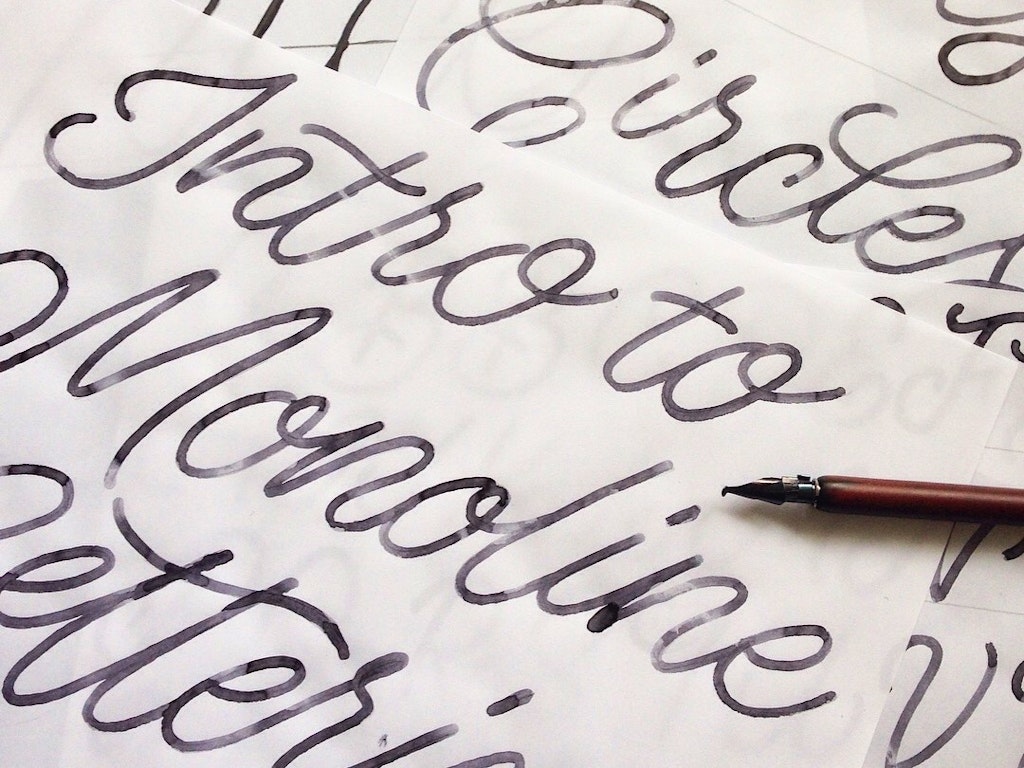 Intro to
Monoline
Letteri
Circles